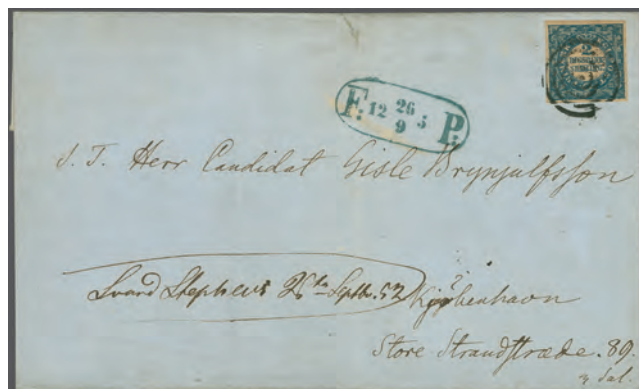 2
F: 12 26/9 5 P:
S. T. Herr Candidat Gisle Brynjulfsson
Svard Stephens 26 Septbr. 52
Kjøbenhavn
Store Strandstræde. 89.
3 Sal.